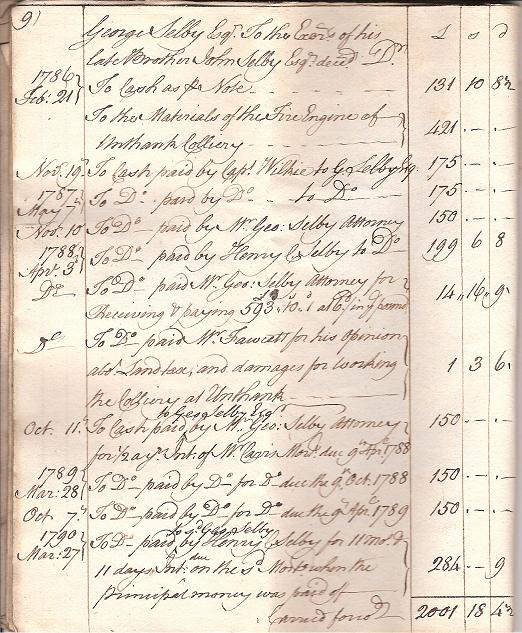 9)
George Selby Esqr. To the Exors. of his £ s d
late Brother John Selby Esqr. deced. Dr.
1786
Feb: 21 To Cash as pr Note 131 10 8½
To the Materials of the Fire Engine of
Unthank Colliery 421 - -
Nov: 19 To Cash paid by Capt. Wilkie to G. Selby Esq. 175 - -
1787
May 7 To Do. paid by Do. to Do. 175 - -
Nov: 10 To Do. paid by Mr Geo: Selby Attorney 150 - -
1788
Apr. 3 To Do. paid by Henry C. Selby to Do. 199 6 8
Do To Do. paid Mr. Geo: Selby Attorney for
Receiving & paying 593.10.1 at 6d. in ye pound 14 16 9
Do To Do. paid Mr. Fawcett for his Opinion
abt. Land tax, and damages for working
the Colliery at Unthank 1 3 6
to Geo: Selby Esqr.
Oct. 11 To Cash paid by Mr Geo: Selby Attorney 150 - -
for 1/2 a yrs. Int. of Mr Carrs Mort. due 9 Apr. 1788
1789
Mar: 28 To Do. paid by Do. for Do. due the 9 Oct. 1788 150 - -
Oct. 7 To Do. paid by Do. for Do. due the 9 Apr. 1789 150 - -
1790
to sd. Geo: Selby
Mar: 27 To Do. paid by Henry Selby for 11 mos. &
due
11 days Int. on the sd. Mort. when the 284 - 9
Principal money was paid of
Carried forwd. 2001 18 4½